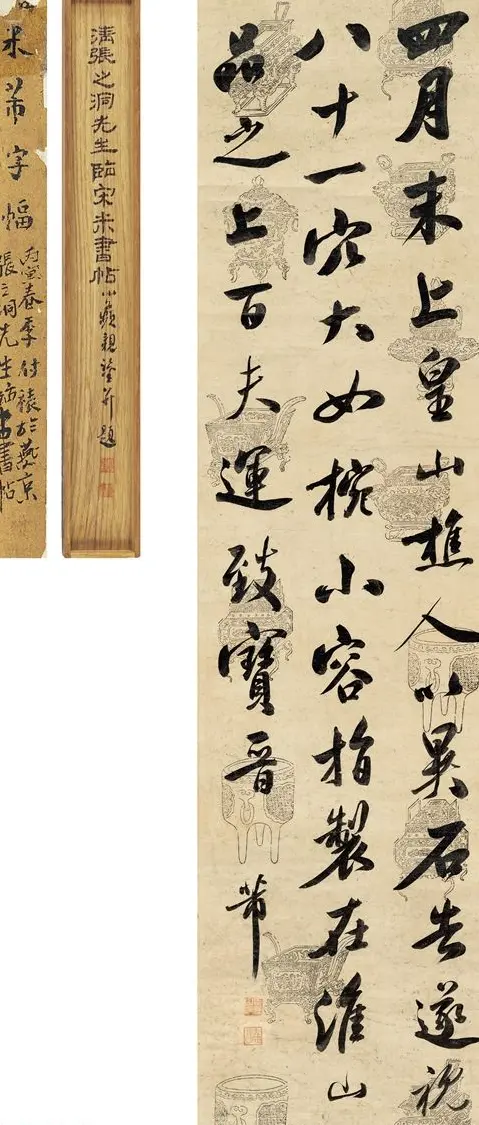 四月末上皇山樵人以異石告遂視
八十一穴大如椀小容指製在淮山
品之上百夫運致寶晉
芾
清張之洞先生臨宋米書帖 題
米芾字幅
丙寅春季付裱於燕京
張之洞先生臨 書帖